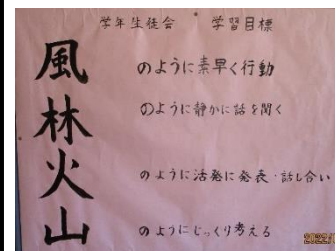 学年生徒会 学習目標
風 のように素早く行動
林 のように静かに話を聞く
火 のように活発に発表・話し合い
山 のようにじっくり考える